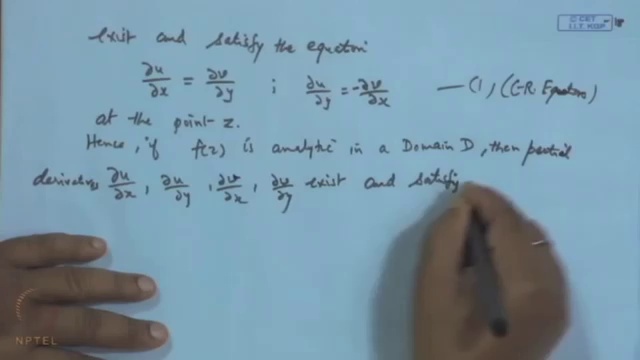 © CET
I.I.T. KGP
exist and satisfy the equation
∂u/∂x = ∂v/∂y ; ∂u/∂y = -∂v/∂x — (1) (C-R. Equations)
at the point z.
Hence, if f(z) is analytic in a Domain D, then partial
derivatives ∂u/∂x, ∂u/∂y, ∂v/∂x, ∂v/∂y exist and satisfy
NPTEL